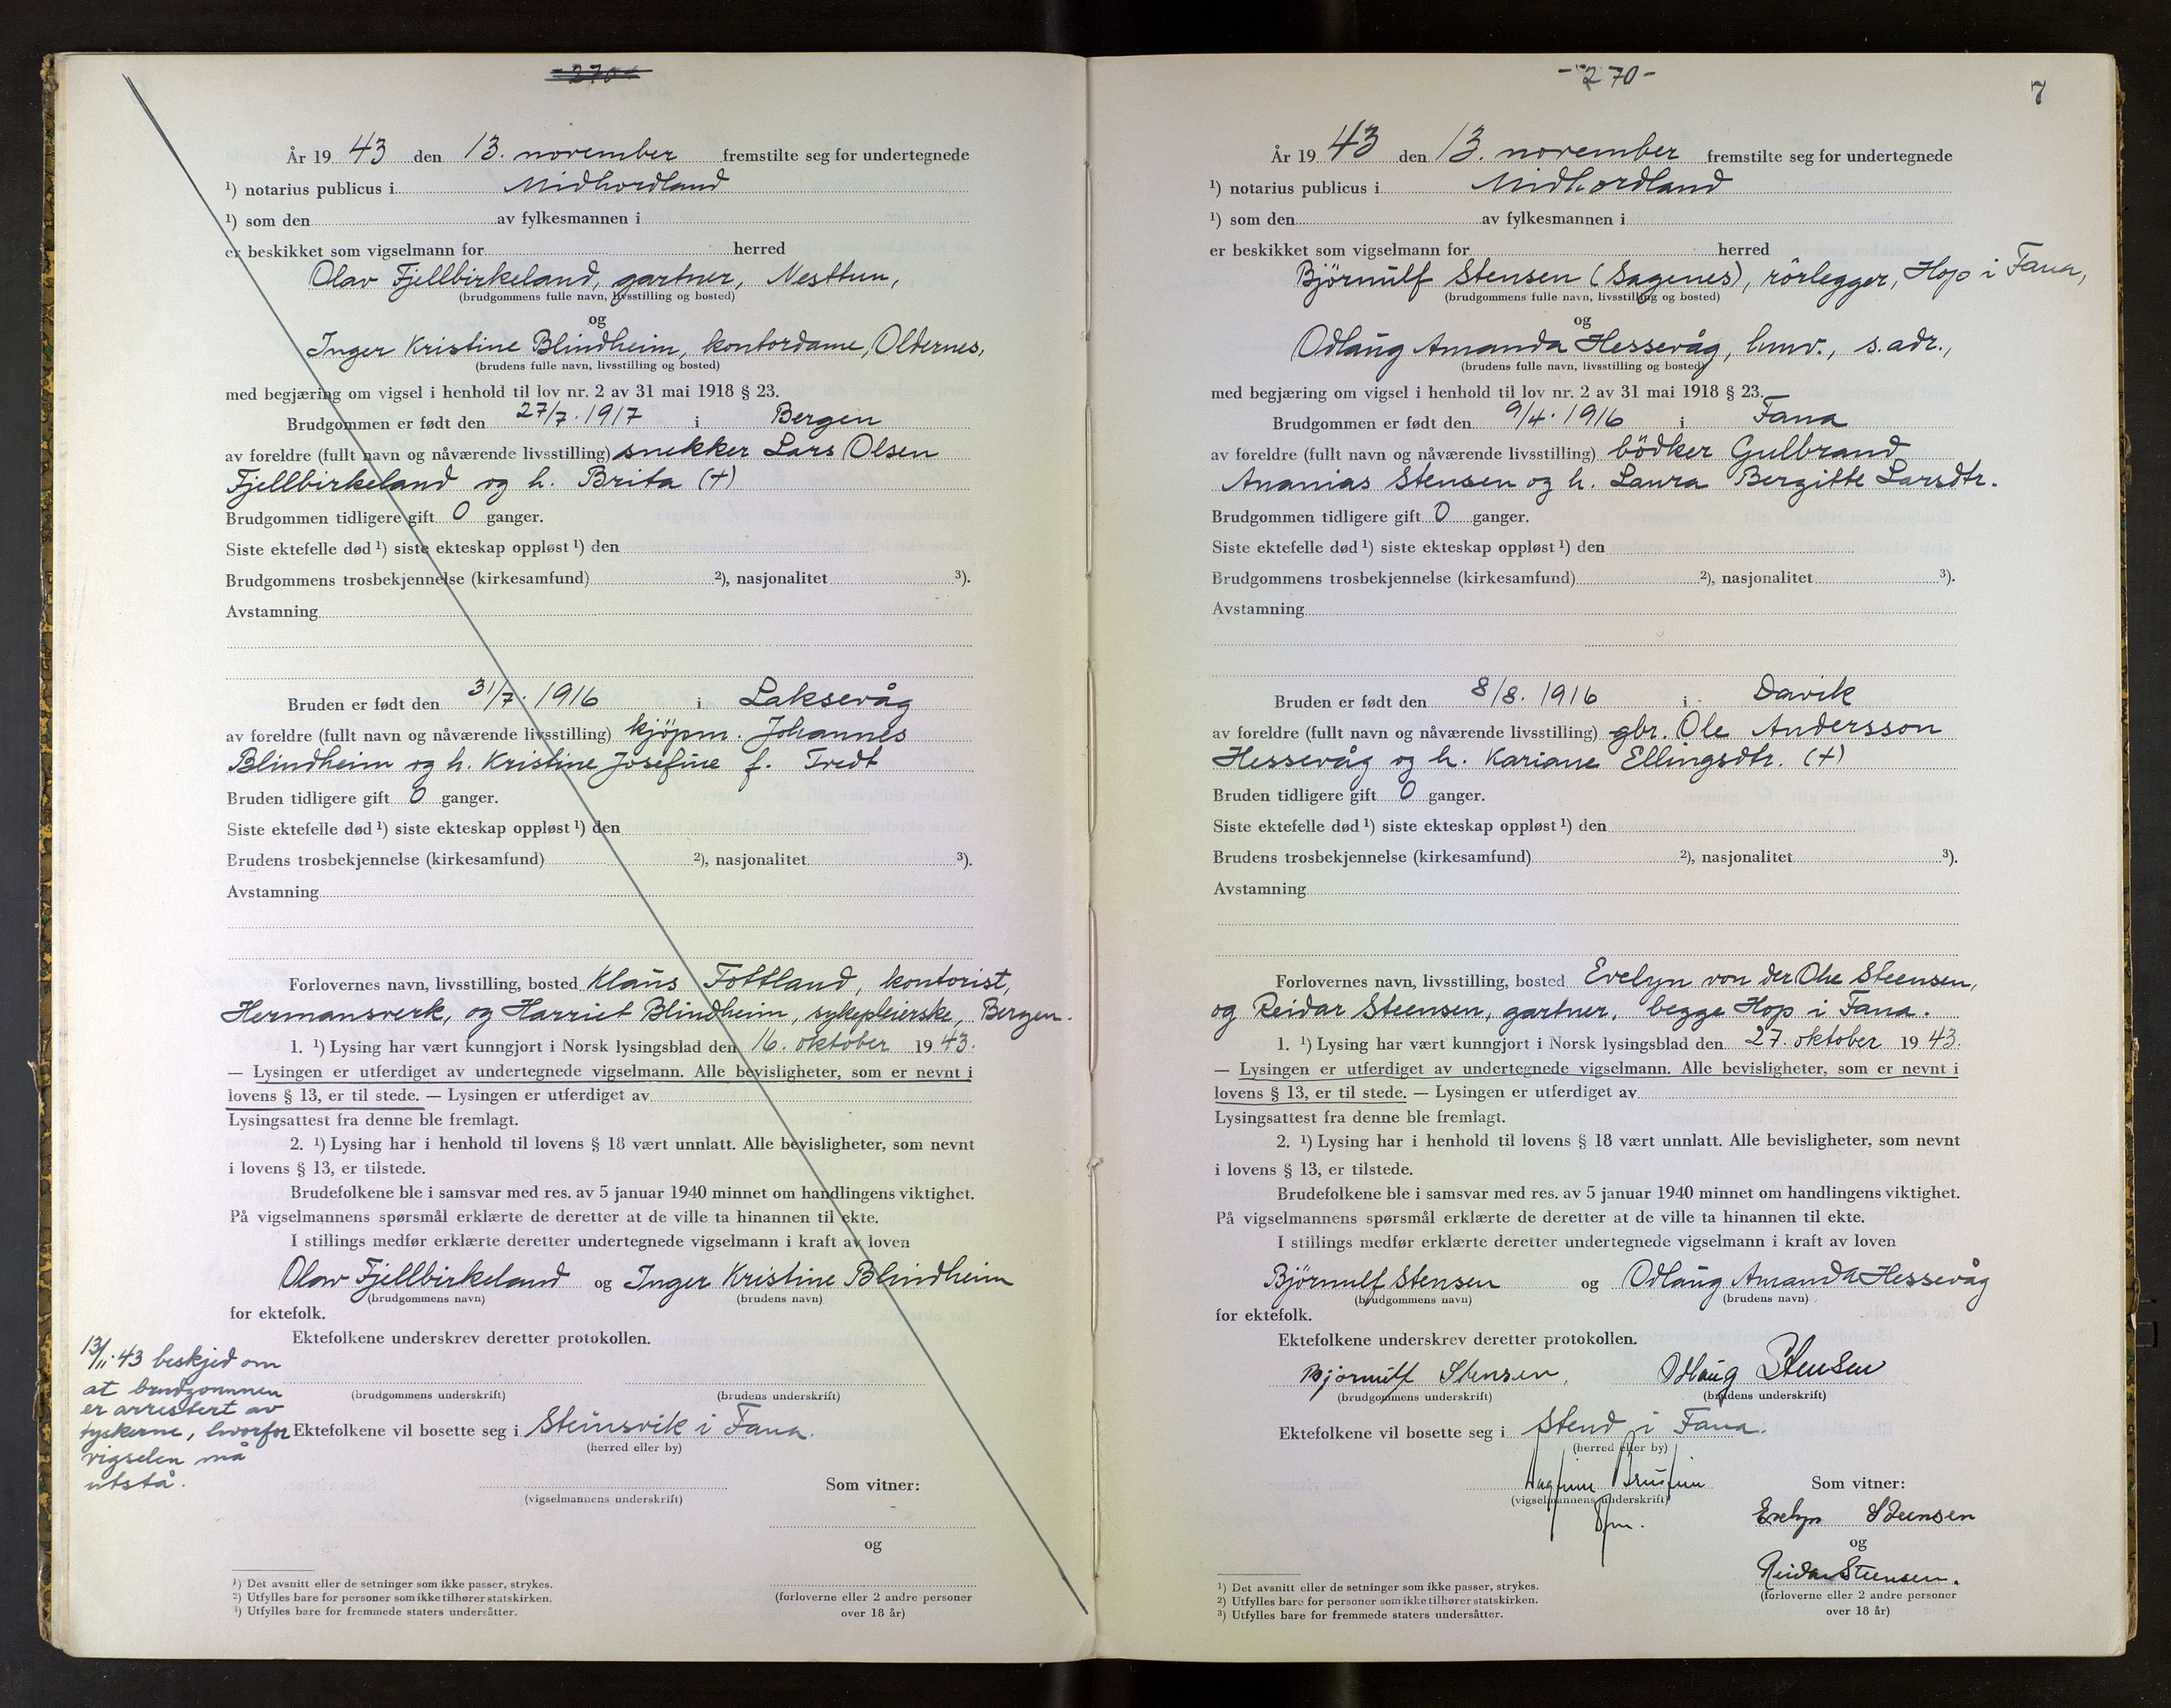 -270-
År 19 43 den 13. november fremstilte seg for undertegnede
¹) notarius publicus i Midhordland
¹) som den av fylkesmannen i
er beskikket som vigselmann for herred
Olav Fjellbirkeland, gartner, Nesttun,
(brudgommens fulle navn, livsstilling og bosted)
og
Inger Kristine Blindheim, kontordame, Oldernes,
(brudens fulle navn, livsstilling og bosted)
med begjæring om vigsel i henhold til lov nr. 2 av 31 mai 1918 § 23.
Brudgommen er født den 27/7. 1917 i Bergen
av foreldre (fullt navn og nåværende livsstilling) snekker Lars Olsen
Fjellbirkeland og h. Brita (+)
Brudgommen tidligere gift 0 ganger.
Siste ektefelle død ¹) siste ekteskap oppløst ¹) den
Brudgommens trosbekjennelse (kirkesamfund) ²), nasjonalitet ³).
Avstamning
Bruden er født den 31/7. 1916 i Laksevåg
av foreldre (fullt navn og nåværende livsstilling) kjöpm. Johannes
Blindheim og h. Kristine Josefine f. Tredt
Bruden tidligere gift 0 ganger.
Siste ektefelle død ¹) siste ekteskap oppløst ¹) den
Brudens trosbekjennelse (kirkesamfund) ²), nasjonalitet ³).
Avstamning
Forlovernes navn, livsstilling, bosted Klaus Tottland, kontorist,
Hermansverk, og Harriet Blindheim, sykepleierske, Bergen.
1. ¹) Lysing har vært kunngjort i Norsk lysingsblad den 16. oktober 19 43.
— Lysingen er utferdiget av undertegnede vigselmann. Alle bevisligheter, som er nevnt i
lovens § 13, er til stede. — Lysingen er utferdiget av
Lysingsattest fra denne ble fremlagt.
2. ¹) Lysing har i henhold til lovens § 18 vært unnlatt. Alle bevisligheter, som nevnt
i lovens § 13, er tilstede.
Brudefolkene ble i samsvar med res. av 5 januar 1940 minnet om handlingens viktighet.
På vigselmannens spørsmål erklærte de deretter at de ville ta hinannen til ekte.
I stillings medfør erklærte deretter undertegnede vigselmann i kraft av loven
Olav Fjellbirkeland og Inger Kristine Blindheim
(brudgommens navn) (brudens navn)
for ektefolk.
Ektefolkene underskrev deretter protokollen.
(brudgommens underskrift) (brudens underskrift)
13/11. 43 beskjed om
at brudgommen
er arrestert av
tyskerne, hvorfor
vigselen må
utstå.
Ektefolkene vil bosette seg i Steinsvik i Fana.
(herred eller by)
Som vitner:
(vigselmannens underskrift)
og
(forloverne eller 2 andre personer
over 18 år)
¹) Det avsnitt eller de setninger som ikke passer, strykes.
²) Utfylles bare for personer som ikke tilhører statskirken.
³) Utfylles bare for fremmede staters undersåtter.
-270-
7
År 19 43 den 13. november fremstilte seg for undertegnede
¹) notarius publicus i Midhordland
¹) som den av fylkesmannen i
er beskikket som vigselmann for herred
Björnulf Stensen (Sagenes), rörlegger, Hop i Fana,
(brudgommens fulle navn, livsstilling og bosted)
og
Odlaug Amanda Hessevåg, hmv., s. adr.,
(brudens fulle navn, livsstilling og bosted)
med begjæring om vigsel i henhold til lov nr. 2 av 31 mai 1918 § 23.
Brudgommen er født den 9/4. 1916 i Fana
av foreldre (fullt navn og nåværende livsstilling) bödker Gulbrand
Ananias Stensen og h. Laura Bergitte Larsdtr.
Brudgommen tidligere gift 0 ganger.
Siste ektefelle død ¹) siste ekteskap oppløst ¹) den
Brudgommens trosbekjennelse (kirkesamfund) ²), nasjonalitet ³).
Avstamning
Bruden er født den 8/8. 1916 i Davik
av foreldre (fullt navn og nåværende livsstilling) gbr. Ole Andersson
Hessevåg og h. Kariane Ellingsdtr. (+)
Bruden tidligere gift 0 ganger.
Siste ektefelle død ¹) siste ekteskap oppløst ¹) den
Brudens trosbekjennelse (kirkesamfund) ²), nasjonalitet ³).
Avstamning
Forlovernes navn, livsstilling, bosted Evelyn von der Ohe Steensen,
og Reidar Steensen, gartner, begge Hop i Fana.
1. ¹) Lysing har vært kunngjort i Norsk lysingsblad den 27. oktober 19 43.
— Lysingen er utferdiget av undertegnede vigselmann. Alle bevisligheter, som er nevnt i
lovens § 13, er til stede. — Lysingen er utferdiget av
Lysingsattest fra denne ble fremlagt.
2. ¹) Lysing har i henhold til lovens § 18 vært unnlatt. Alle bevisligheter, som nevnt
i lovens § 13, er tilstede.
Brudefolkene ble i samsvar med res. av 5 januar 1940 minnet om handlingens viktighet.
På vigselmannens spørsmål erklærte de deretter at de ville ta hinannen til ekte.
I stillings medfør erklærte deretter undertegnede vigselmann i kraft av loven
Björnulf Stensen og Odlaug Amanda Hessevåg
(brudgommens navn) (brudens navn)
for ektefolk.
Ektefolkene underskrev deretter protokollen.
Bjornulf Stensen, Odlaug Stensen
(brudgommens underskrift) (brudens underskrift)
Ektefolkene vil bosette seg i Stend i Fana.
(herred eller by)
Som vitner:
(vigselmannens underskrift)
Evelyn Steensen
og
Reidar Steensen.
(forloverne eller 2 andre personer
over 18 år)
¹) Det avsnitt eller de setninger som ikke passer, strykes.
²) Utfylles bare for personer som ikke tilhører statskirken.
³) Utfylles bare for fremmede staters undersåtter.